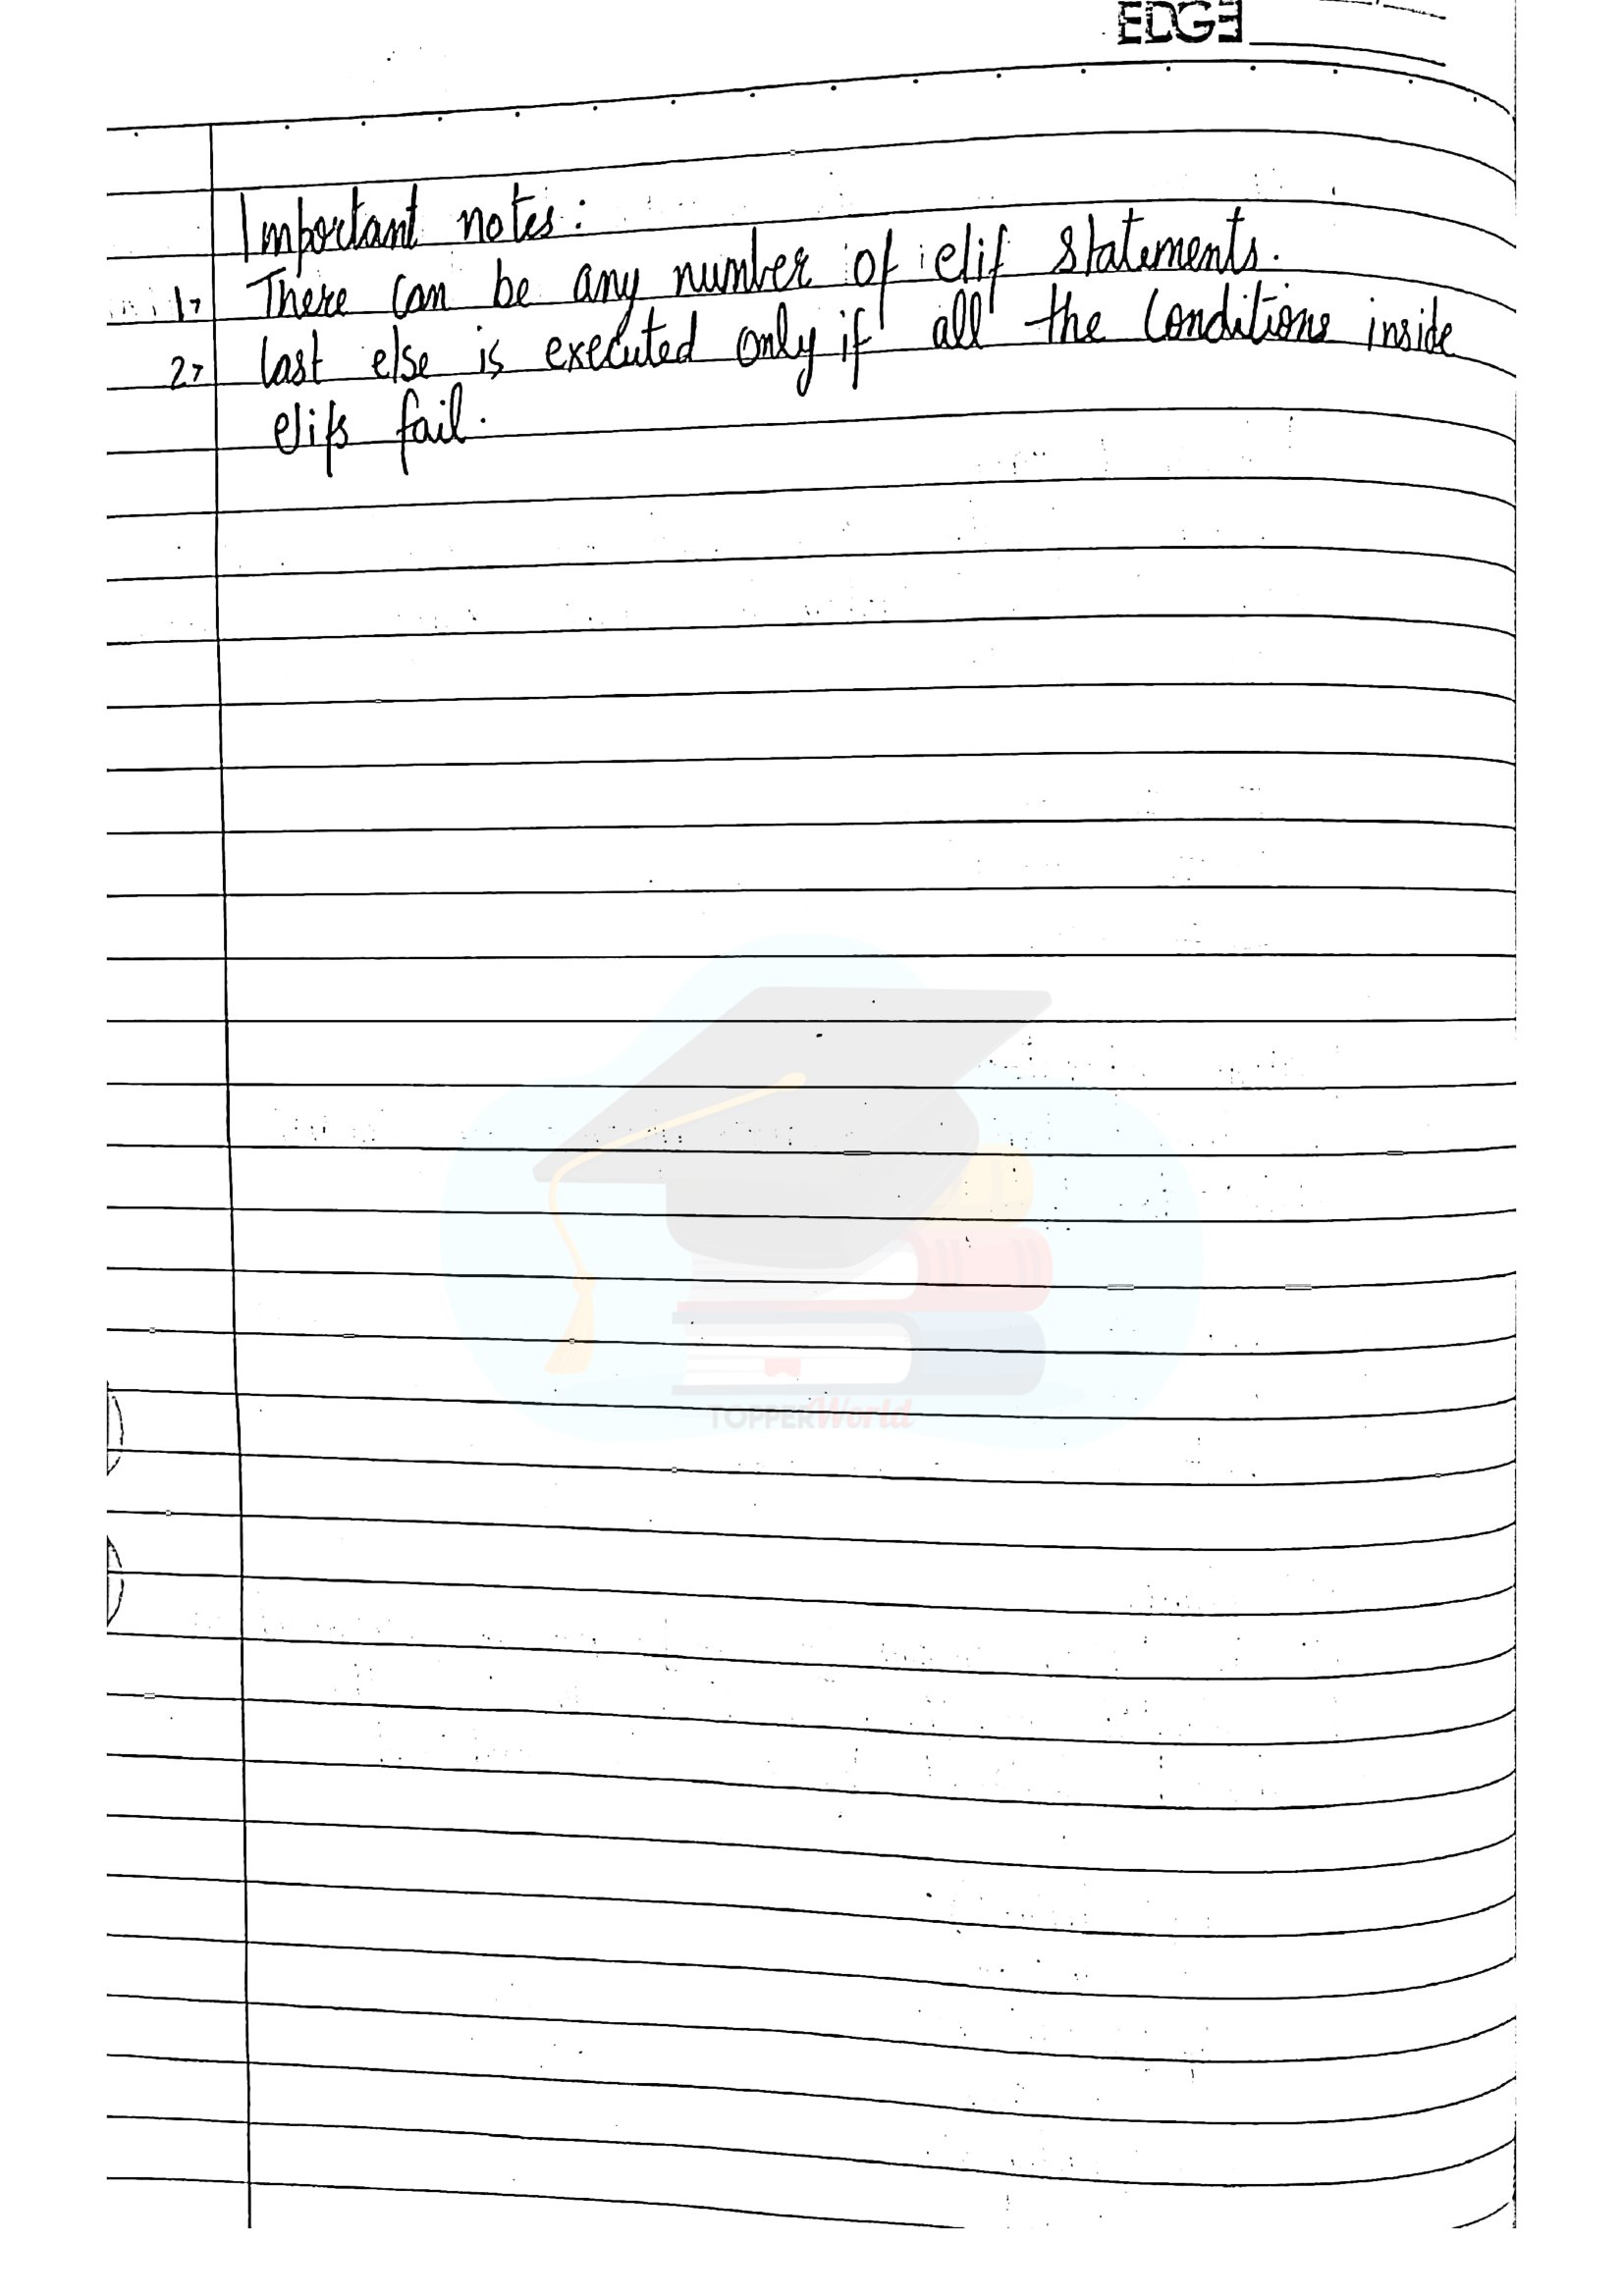 EDGE
Important notes:
1> There can be any number of elif statements.
2> last else is executed only if all the conditions inside
elifs fail.
TOPPERWorld